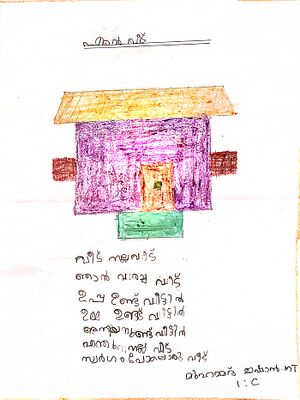 എന്റെ വീട്
വീട് നല്ലവീട്
ഞാൻ വരച്ച വീട്ട്
ഉപ്പ ഉണ്ട് വീട്ടിൽ
ഉമ്മ ഉണ്ട് വീട്ടിൽ
വീട്ടിൽ
നല്ല വീട്
സ്വർഗം പോലൊരു വീട്
മുഹമ്മദ് ഇഷാൻ.MT
1:C